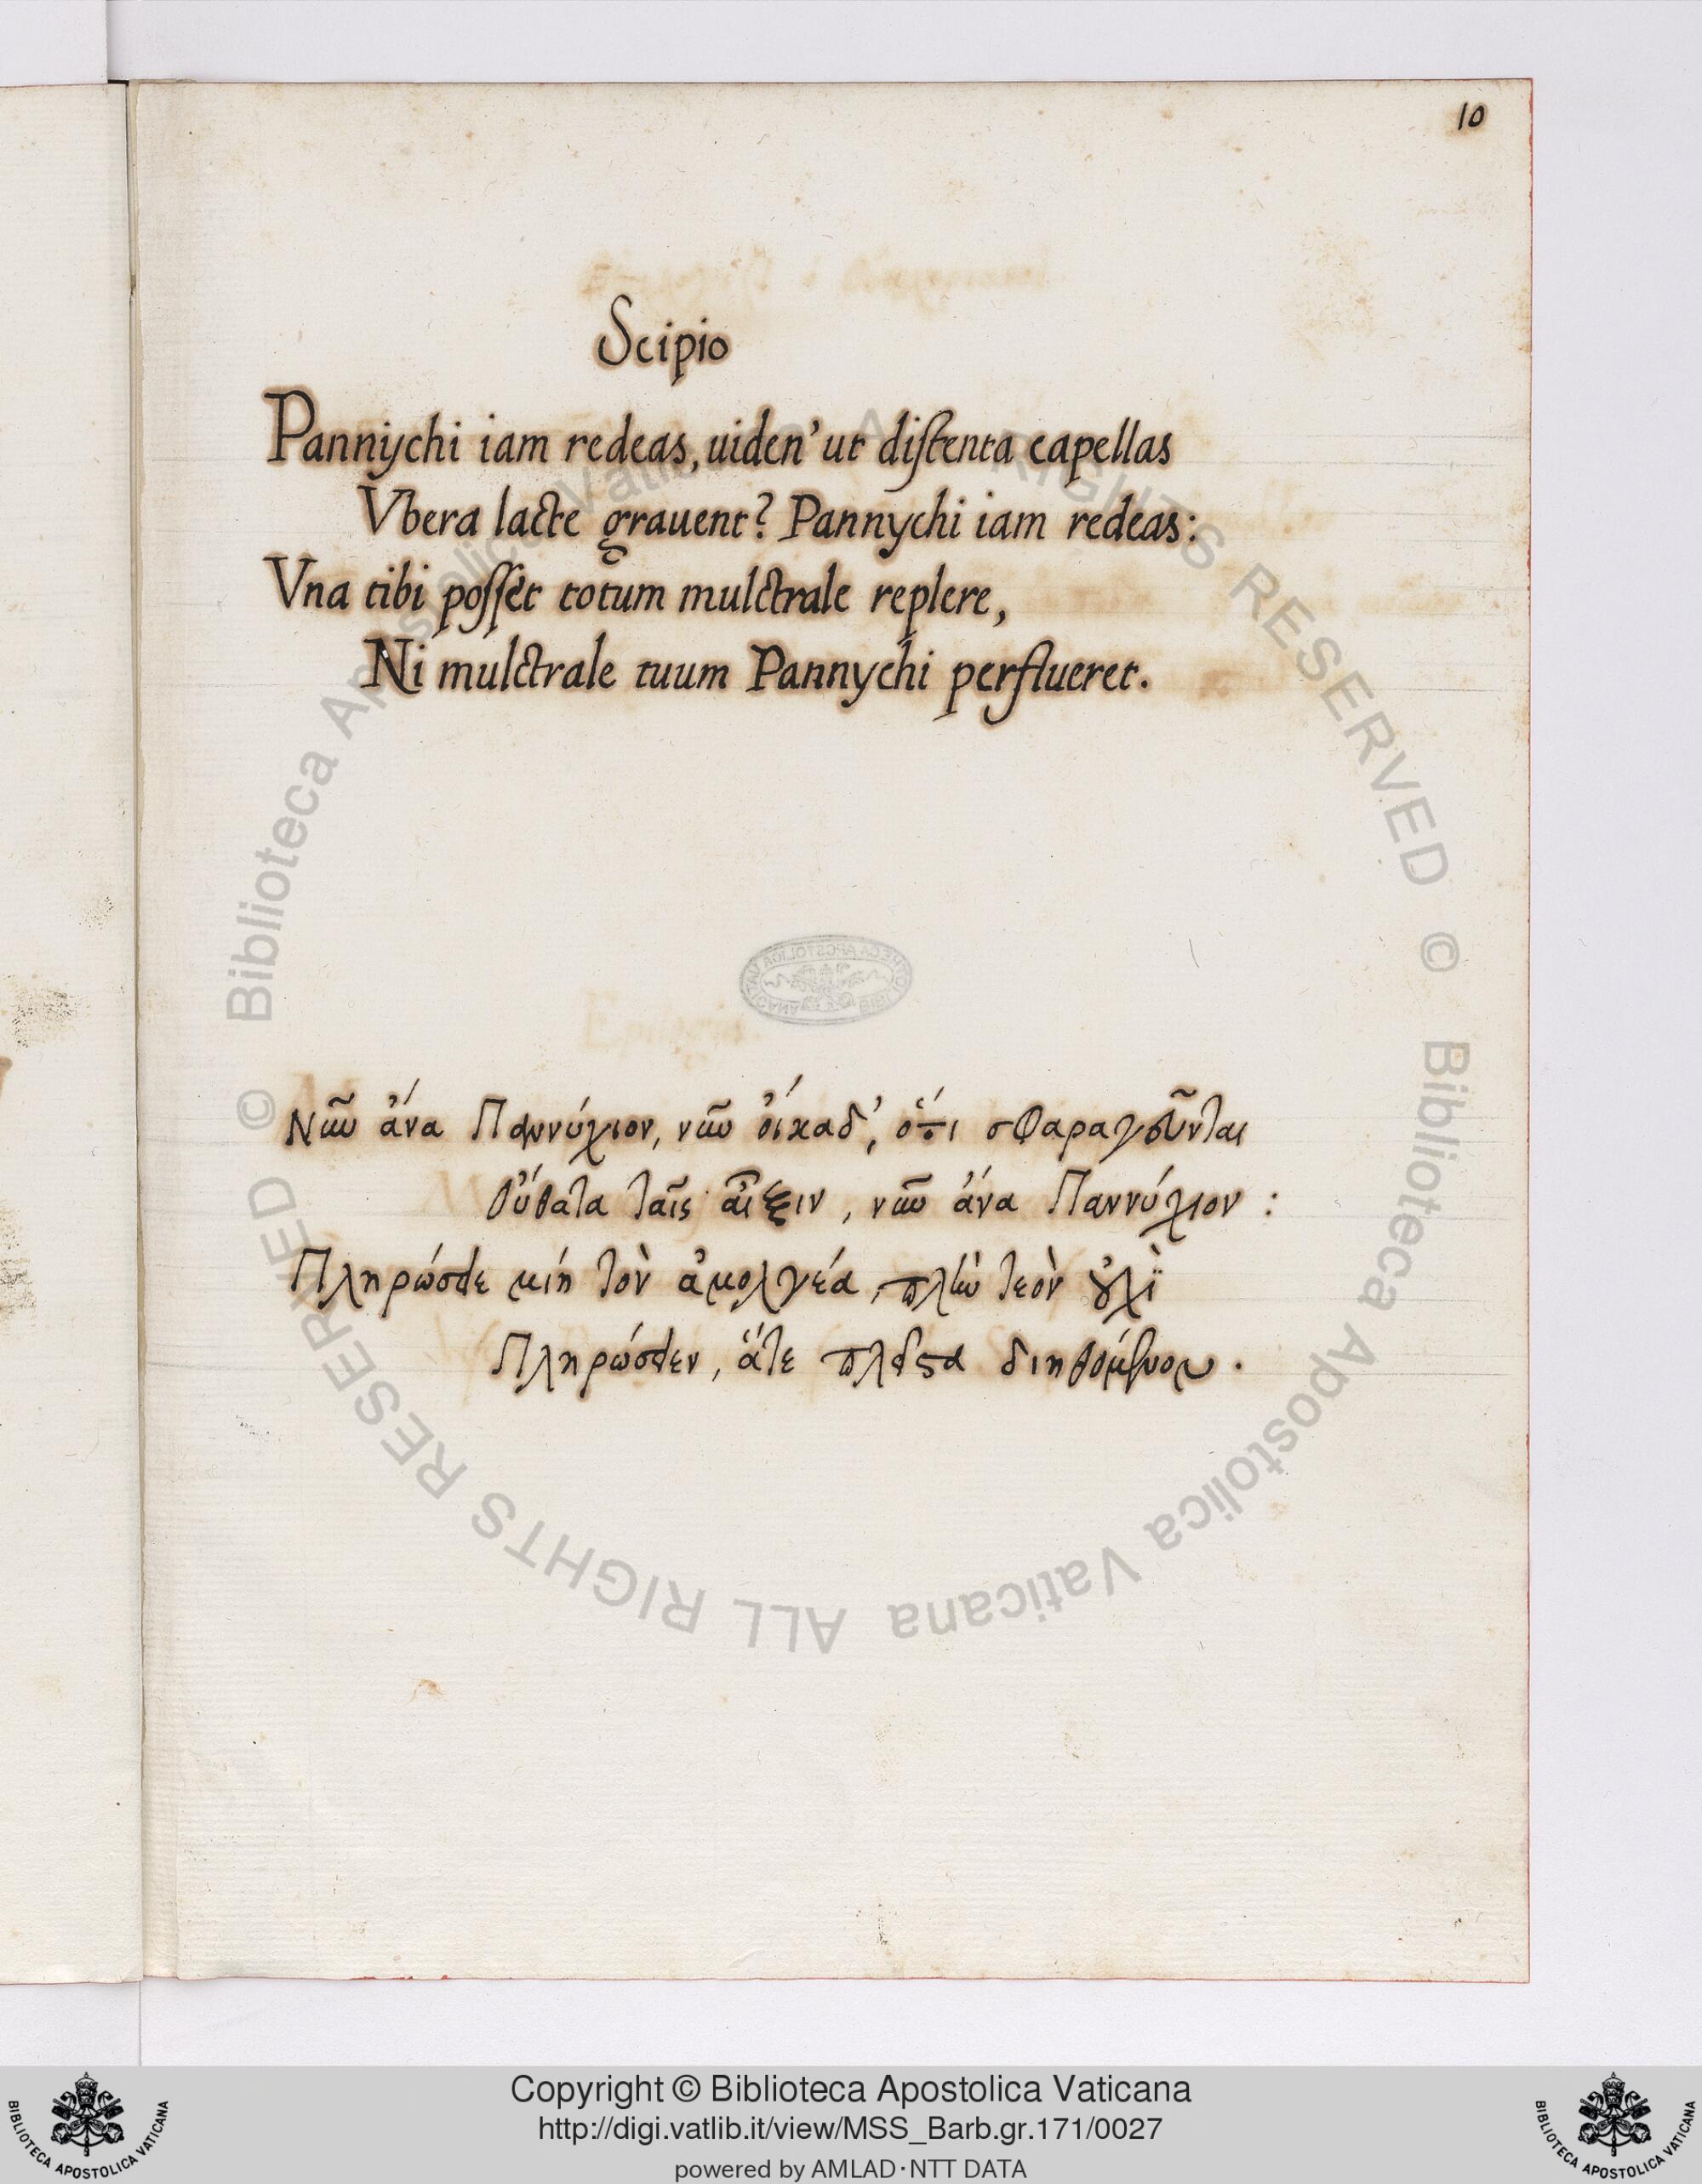 10
Scipio
Pannychi iam redeas, uiden' ut distenta capellas
Vbera lacte grauent? Pannychi iam redeas:
Vna tibi posset totum mulctrale replere,
Ni mulctrale tuum Pannychi perflueret.
Νῦν ἄνα Παννύχιον, νῦν οἴκαδ', ὅτι σφαραγοῦνται
Οὔθατα ταῖς αἰξίν, νῦν ἄνα Παννύχιον :
Πληρώσδε μίη τὸν ἀμολγέα, πλὴν τεὸν οὐχὶ
Πληρώσδεν, ἅτε
© Biblioteca Apostolica Vaticana ALL RIGHTS RESERVED
© Biblioteca Apostolica Vaticana ALL RIGHTS RESERVED
Copyright © Biblioteca Apostolica Vaticana
http://digi.vatlib.it/view/MSS_Barb.gr.171/0027
powered by AMLAD·NTT DATA
BIBLIOTECA APOSTOLICA VATICANA
BIBLIOTECA APOSTOLICA VATICANA